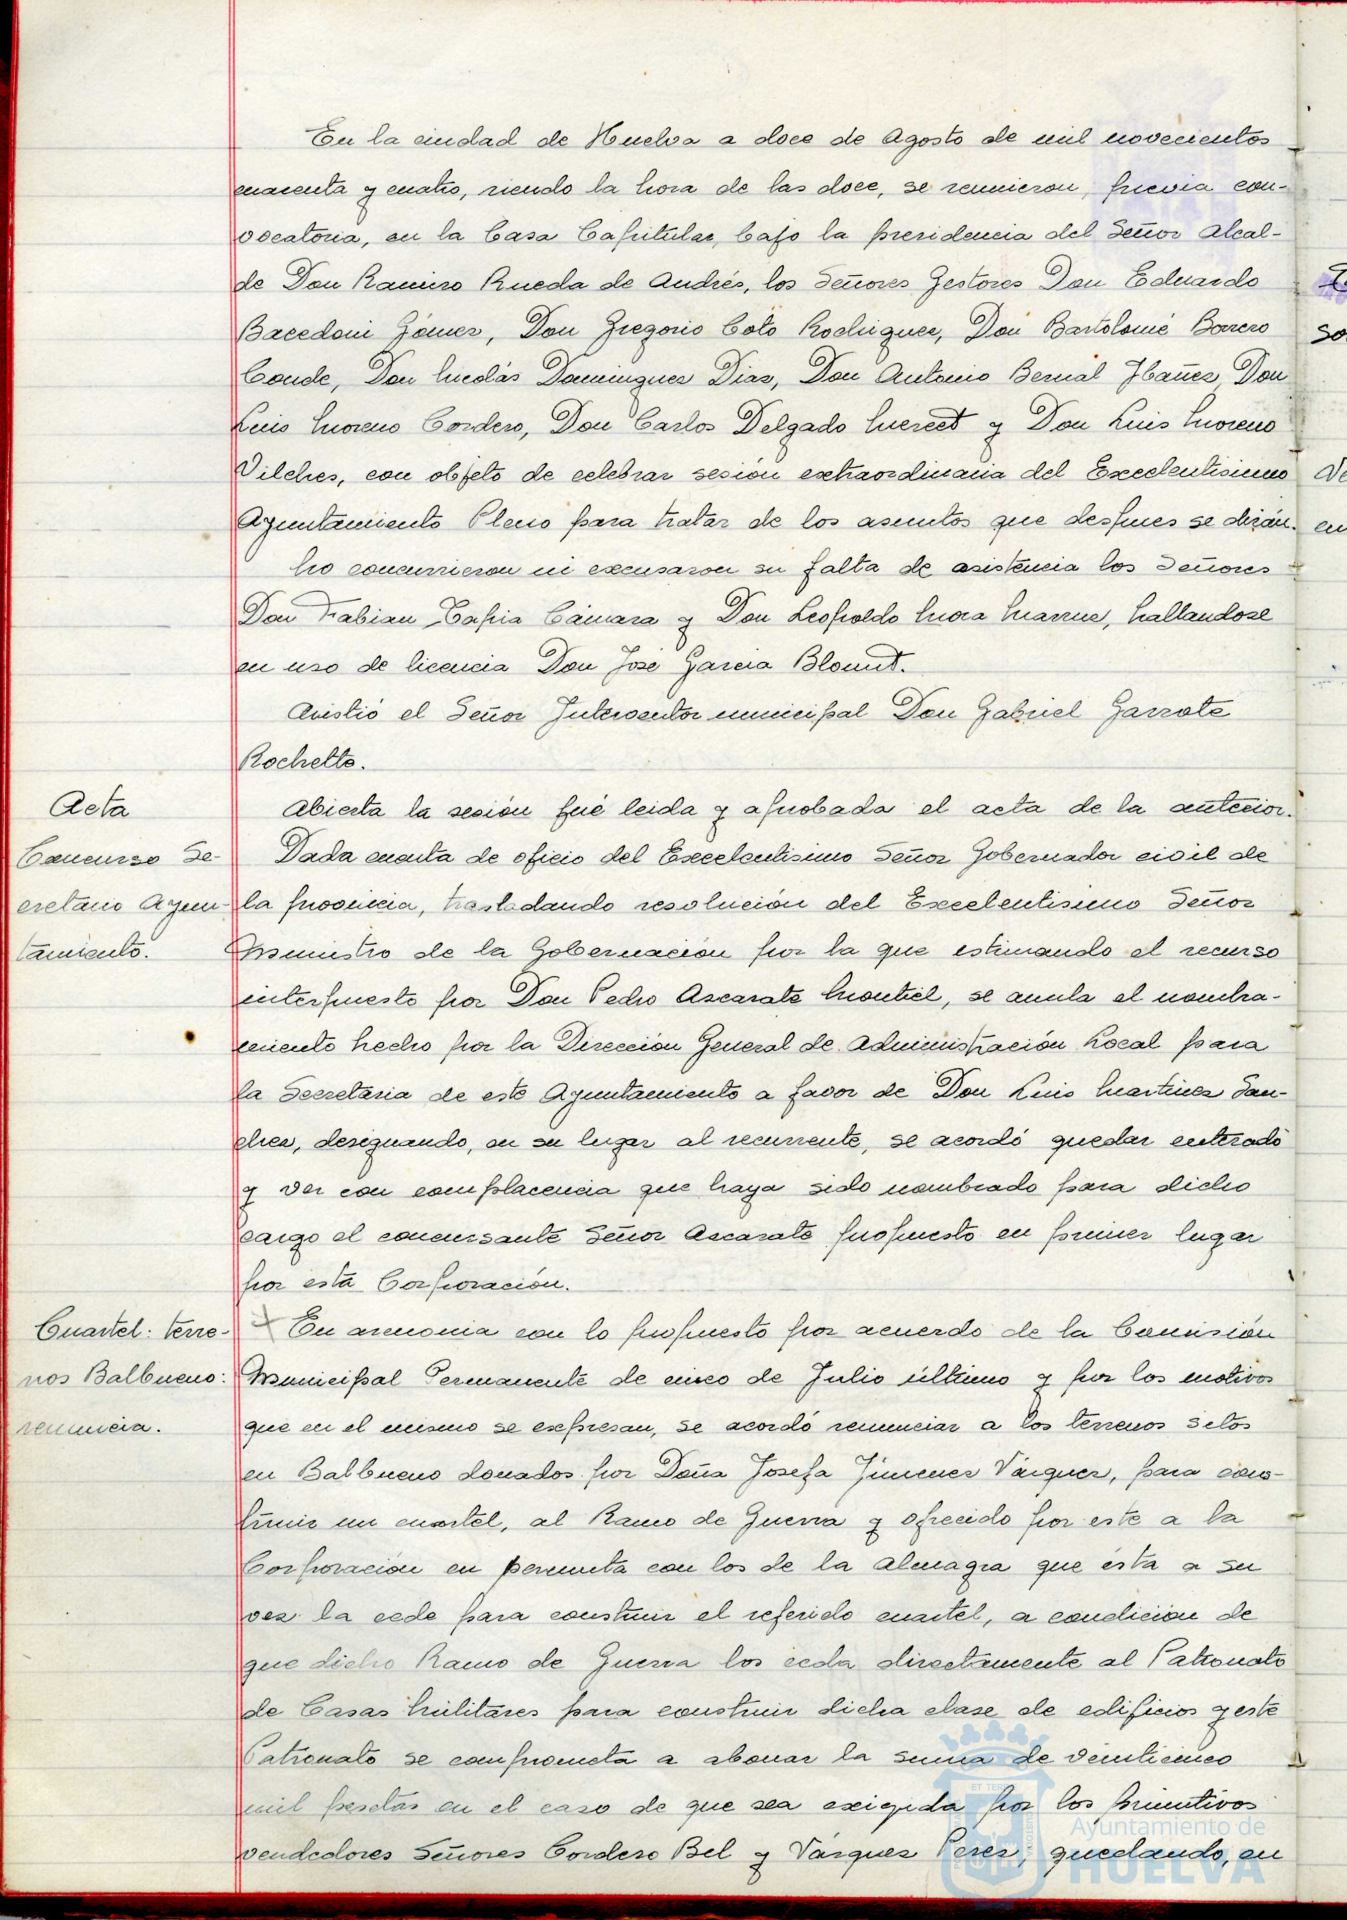 En la ciudad de Huelva a doce de Agosto de mil novecientos
cuarenta y cuatro, siendo la hora de las doce, se reunieron, previa con-
vocatoria, en la Casa Capitular, bajo la presidencia del Señor Alcal-
de Don Ramiro Rueda de Andrés, los Señores Gestores Don Eduardo
Bacedoni Gómez, Don Gregorio Coto Rodriguez, Don Bartolomé Borrero
Conde, Don Nicolás Dominguez Diaz, Don Antonio Bernal Ybañez, Don
Luis Moreno Cordero, Don Carlos Delgado y Don Luis Moreno
Vilches, con objeto de celebrar sesión extraordinaria del Excelentisimo
Ayuntamiento Pleno para tratar de los asuntos que despues se dirán.
No concurrieron ni excusaron su falta de asistencia los Señores
Don Fabian Tapia Cámara y Don Leopoldo Mora, hallandose
en uso de licencia Don José Garcia Blount.
Asistió el Señor Interventor municipal Don Gabriel Garrote
Rochette.
Acta
Abierta la sesión fué leida y aprobada el acta de la anterior.
Concurso Se-
cretario Ayun-
tamiento.
Dada cuenta de oficio del Excelentisimo Señor Gobernador civil de
la provincia, trasladando resolución del Excelentisimo Señor
Ministro de la Gobernación por la que estimando el recurso
interpuesto por Don Pedro Ascarate Montiel, se anula el nombra-
miento hecho por la Dirección General de Administración Local para
la Secretaria de este Ayuntamiento a favor de Don Luis Martinez San-
chez, designando, en su lugar al recurrente, se acordó quedar enterado
y ver con complacencia que haya sido nombrado para dicho
cargo el concursante Señor Ascarate propuesto en primer lugar
por esta Corporación.
Cuartel: terre-
nos Balbueno:
renuncia.
En armonia con lo propuesto por acuerdo de la Comisión
Municipal Permanente de cinco de Julio último y por los motivos
que en el mismo se expresan, se acordó renunciar a los terrenos sitos
en Balbueno donados por Doña Josefa Jimenez Vázquez, para cons-
truir un cuartel, al Ramo de Guerra y ofrecido por este a la
Corporación en permuta con los de la Almagra que ésta a su
vez la cede para construir el referido cuartel, a condición de
que dicho Ramo de Guerra los ceda directamente al Patronato
de Casas Militares para construir dicha clase de edificios y este
Patronato se comprometa a abonar la suma de veinticinco
mil pesetas en el caso de que sea exigida por los primitivos
vendedores Señores Cordero Bel y Vázquez Perez, quedando, en
Ayuntamiento de
HUELVA